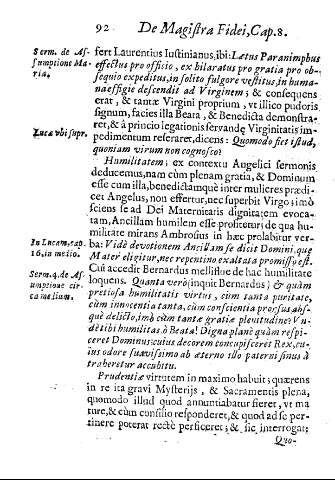 92 De Magistra Fidei, Cap. 8.
Serm. de As-
sumptione Ma-
ria.
fert Laurentius Iustinianus, ibi: Lætus Paranimphus
effectus pro officio, ex hilaratus pro gratia pro ob-
sequio expeditus, in solito fulgore vestitus, in huma-
na effigie descendit ad Virginem; & consequens
erat, & tantæ Virgini proprium, vt illico pudoris
signum, facies illa Beata, & Benedicta demonstra-
Lucæ vbi supr.
ret, & à principio legationis servandę Virginitatis im-
pedimentum referaret, dicens: Quomodo fiet istud,
quoniam virum non cognosco?
Humilitatem; ex contextu Angelici sermonis
deducemus, nam cùm plenam gratia, & Dominum
esse cum illa, benedictamquè inter mulieres prædi-
cet Angelus, non effertur, nec superbit Virgo: imò
sciens se ad Dei Maternitatis dignitatem evoca-
tam, Ancillam humilem esse profitetur; de qua hu-
militate mirans Ambrosius in hæc prolabitur ver-
In Lucam, cap.
16, in medio.
ba: Vidè devotionem Ancillam se dicit Domini, quę
Mater eligitur, nec repentino exaltata promisso est.
Serm. 4. de As-
sumptione cir-
ca medium.
Cui accedit Bernardus mellifluè de hac humilitate
loquens. Quanta verò (inquit Bernardus) & quàm
pretiosa humilitatis virtus, cùm tanta puritate,
cùm innocentia tanta, cùm conscientia prorsus abs-
què delicto, imò cùm tantæ gratiæ plenitudine? Vn-
dè tibi humilitas, ò Beata? Digna planè quàm respi-
ceret Dominus: cuius decorem concupisceret Rex, cu-
ius odore suavissimo ab æterno illo paterni sinus à
traheretur accubitu.
Prudentiæ virtutem in maximo habuit; quærens
in re ita gravi Mysterijs, & Sacramentis plena,
quomodo illud quod annuntiabatur fieret, vt ma
ture, & cùm consilio responderet, & quod ad se per-
tinere poterat rectè perficeret; & sic interrogat:
Quo-